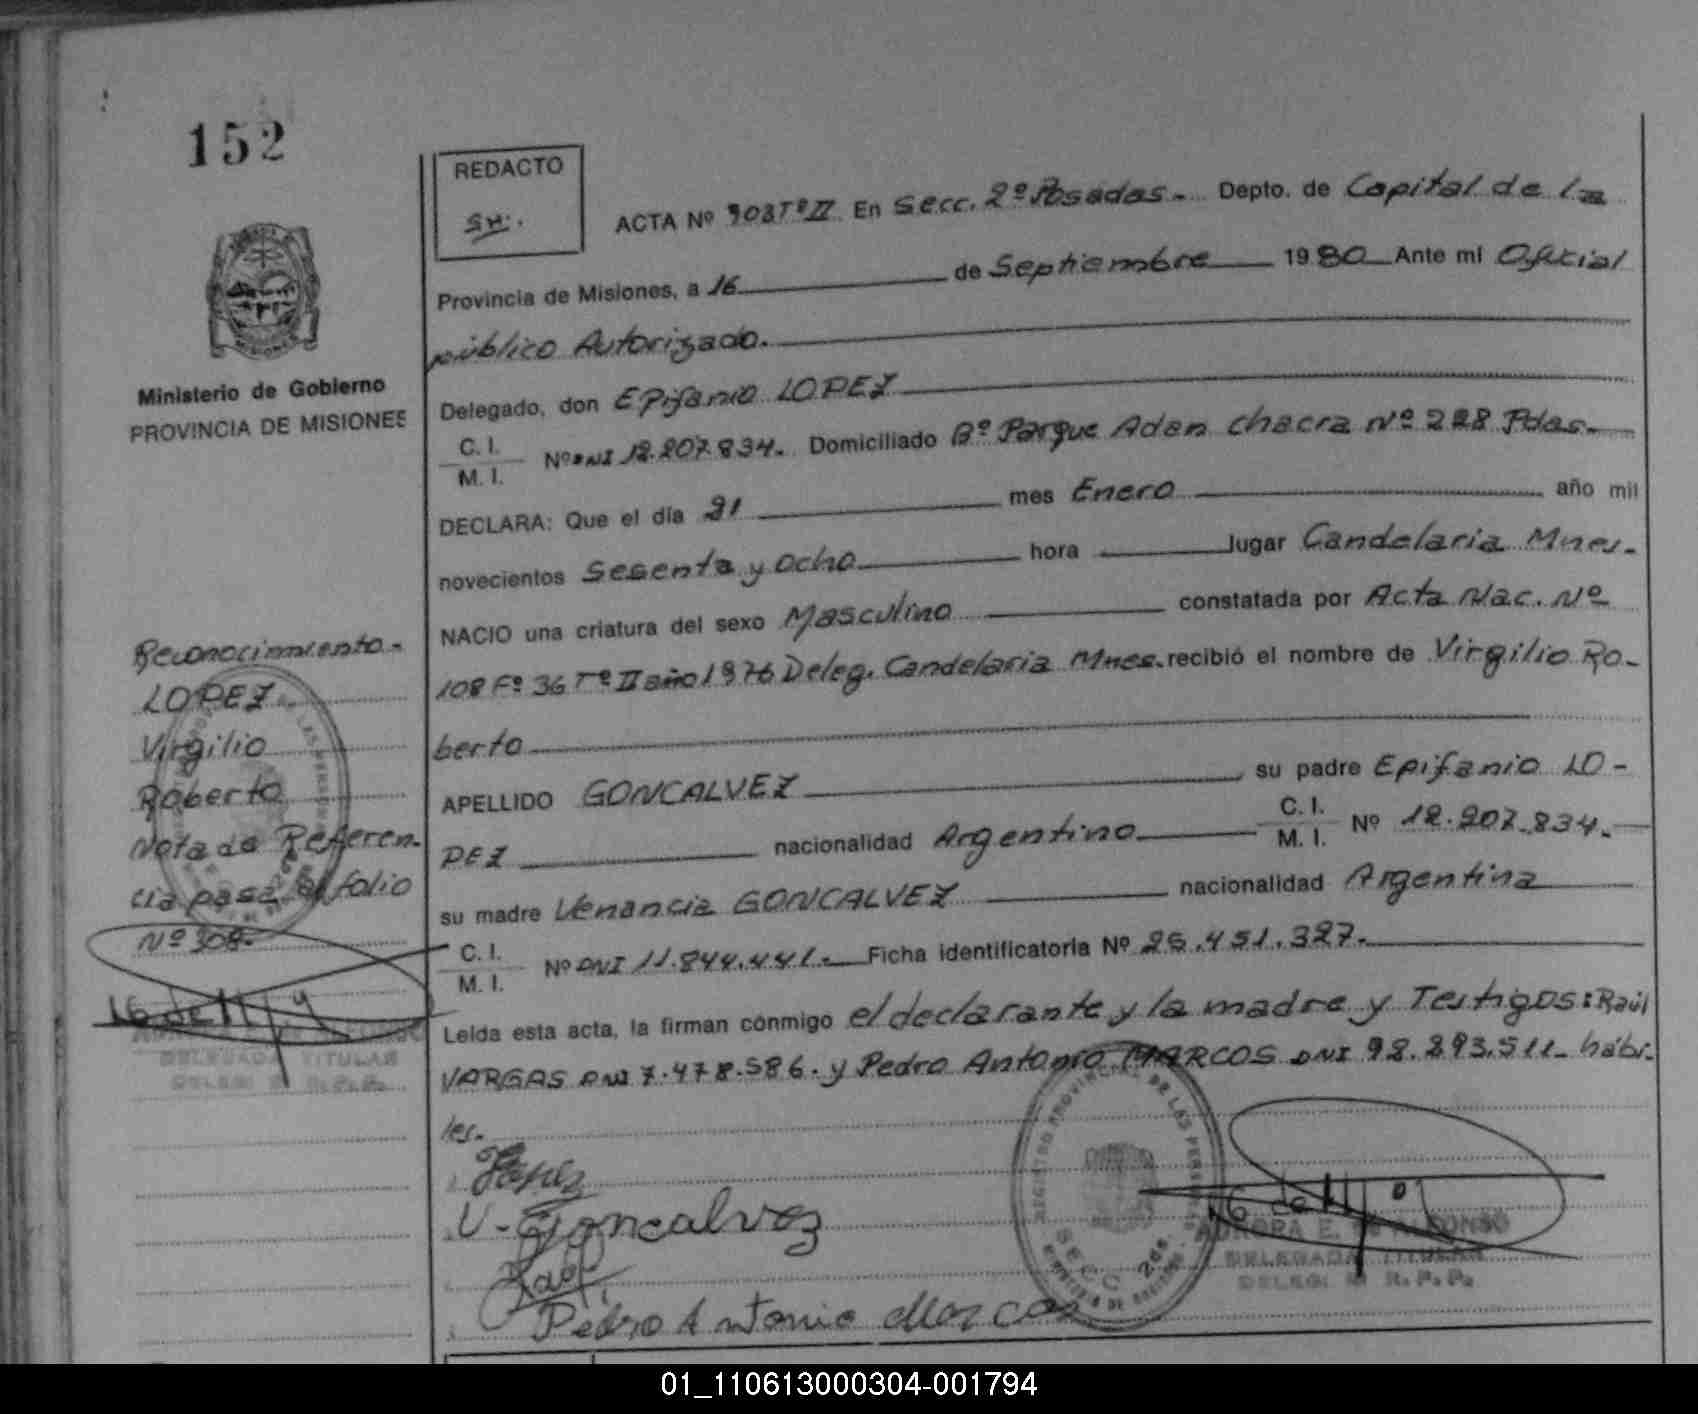 152
REDACTO
SH.
ACTA Nº 908 Tº II En Secc. 2º Posadas. Depto. de Capital de la
Provincia de Misiones, a 16 de Septiembre 1980 Ante mi Oficial
público Autorizado.
Delegado, don Epifanio LOPEZ
C. I.
M. I.
Nº DNI 12.207.834. Domiciliado Bº Parque Adan chacra Nº 228 Pdas.
DECLARA: Que el día mes Enero año mil
novecientos Sesenta y Ocho hora lugar Candelaria Mnes.
NACIO una criatura del sexo Masculino constatada por Acta Nac. Nº
108 Fº 36 Tº II año 1976 Deleg. Candelaria Mnes. recibió el nombre de Virgilio Ro-
berto
APELLIDO GONCALVEZ su padre Epifanio LO-
PEZ nacionalidad Argentino C. I. M. I. Nº 12.207.834.
su madre Venancia GONCALVEZ nacionalidad Argentina
C. I.
M. I.
Nº DNI 11.844.441. Ficha identificatoria Nº
Leída esta acta, la firman conmigo el declarante y la madre y Testigos: Raúl
VARGAS DNI 7.478.586. y Pedro Antonio MARCOS DNI hábi-
les.
Lopez
V. Goncalvez
Raul
Pedro Antonio Marcos
REGISTRO PROVINCIAL DE LAS PERSONAS
SECC 2da.
AURORA E. DE ALFONSO
DELEGADA TITULAR
DELEG. R.P.P.
Ministerio de Gobierno
PROVINCIA DE MISIONES
Reconocimiento.
LOPEZ
Virgilio
Roberto
Nota de Referen-
cia pasa al folio
Nº 308.
DELEGADA TITULAR
DELEG. R.P.P.
01_110613000304-001794